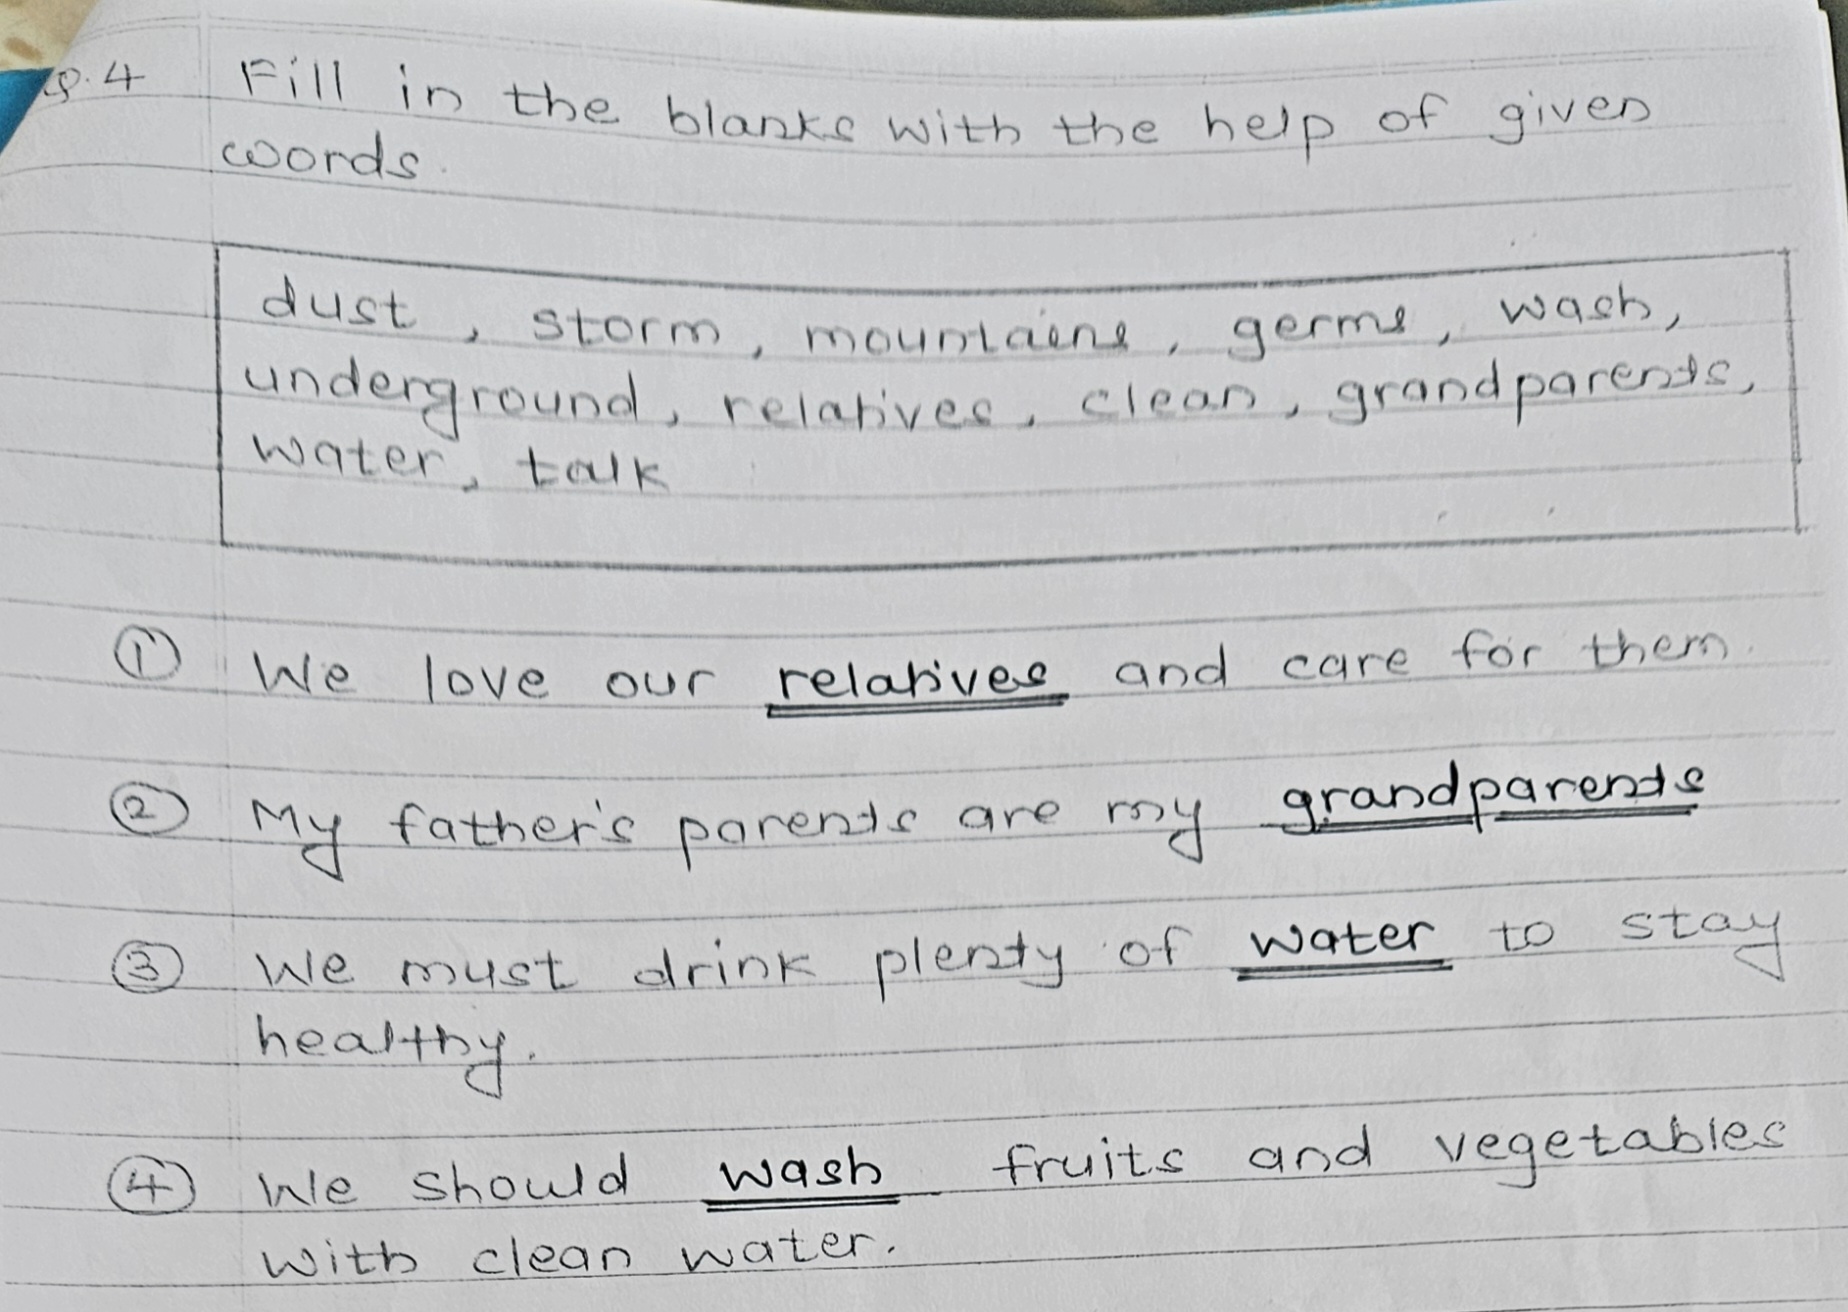 Q.4 Fill in the blanks with the help of given
words.
dust, storm, mountains, germs, wash,
underground, relatives, clean, grandparents,
water, talk
① We love our relatives and care for them.
② My father's parents are my grandparents
③ We must drink plenty of water to stay
healthy.
④ We should wash fruits and vegetables
with clean water.